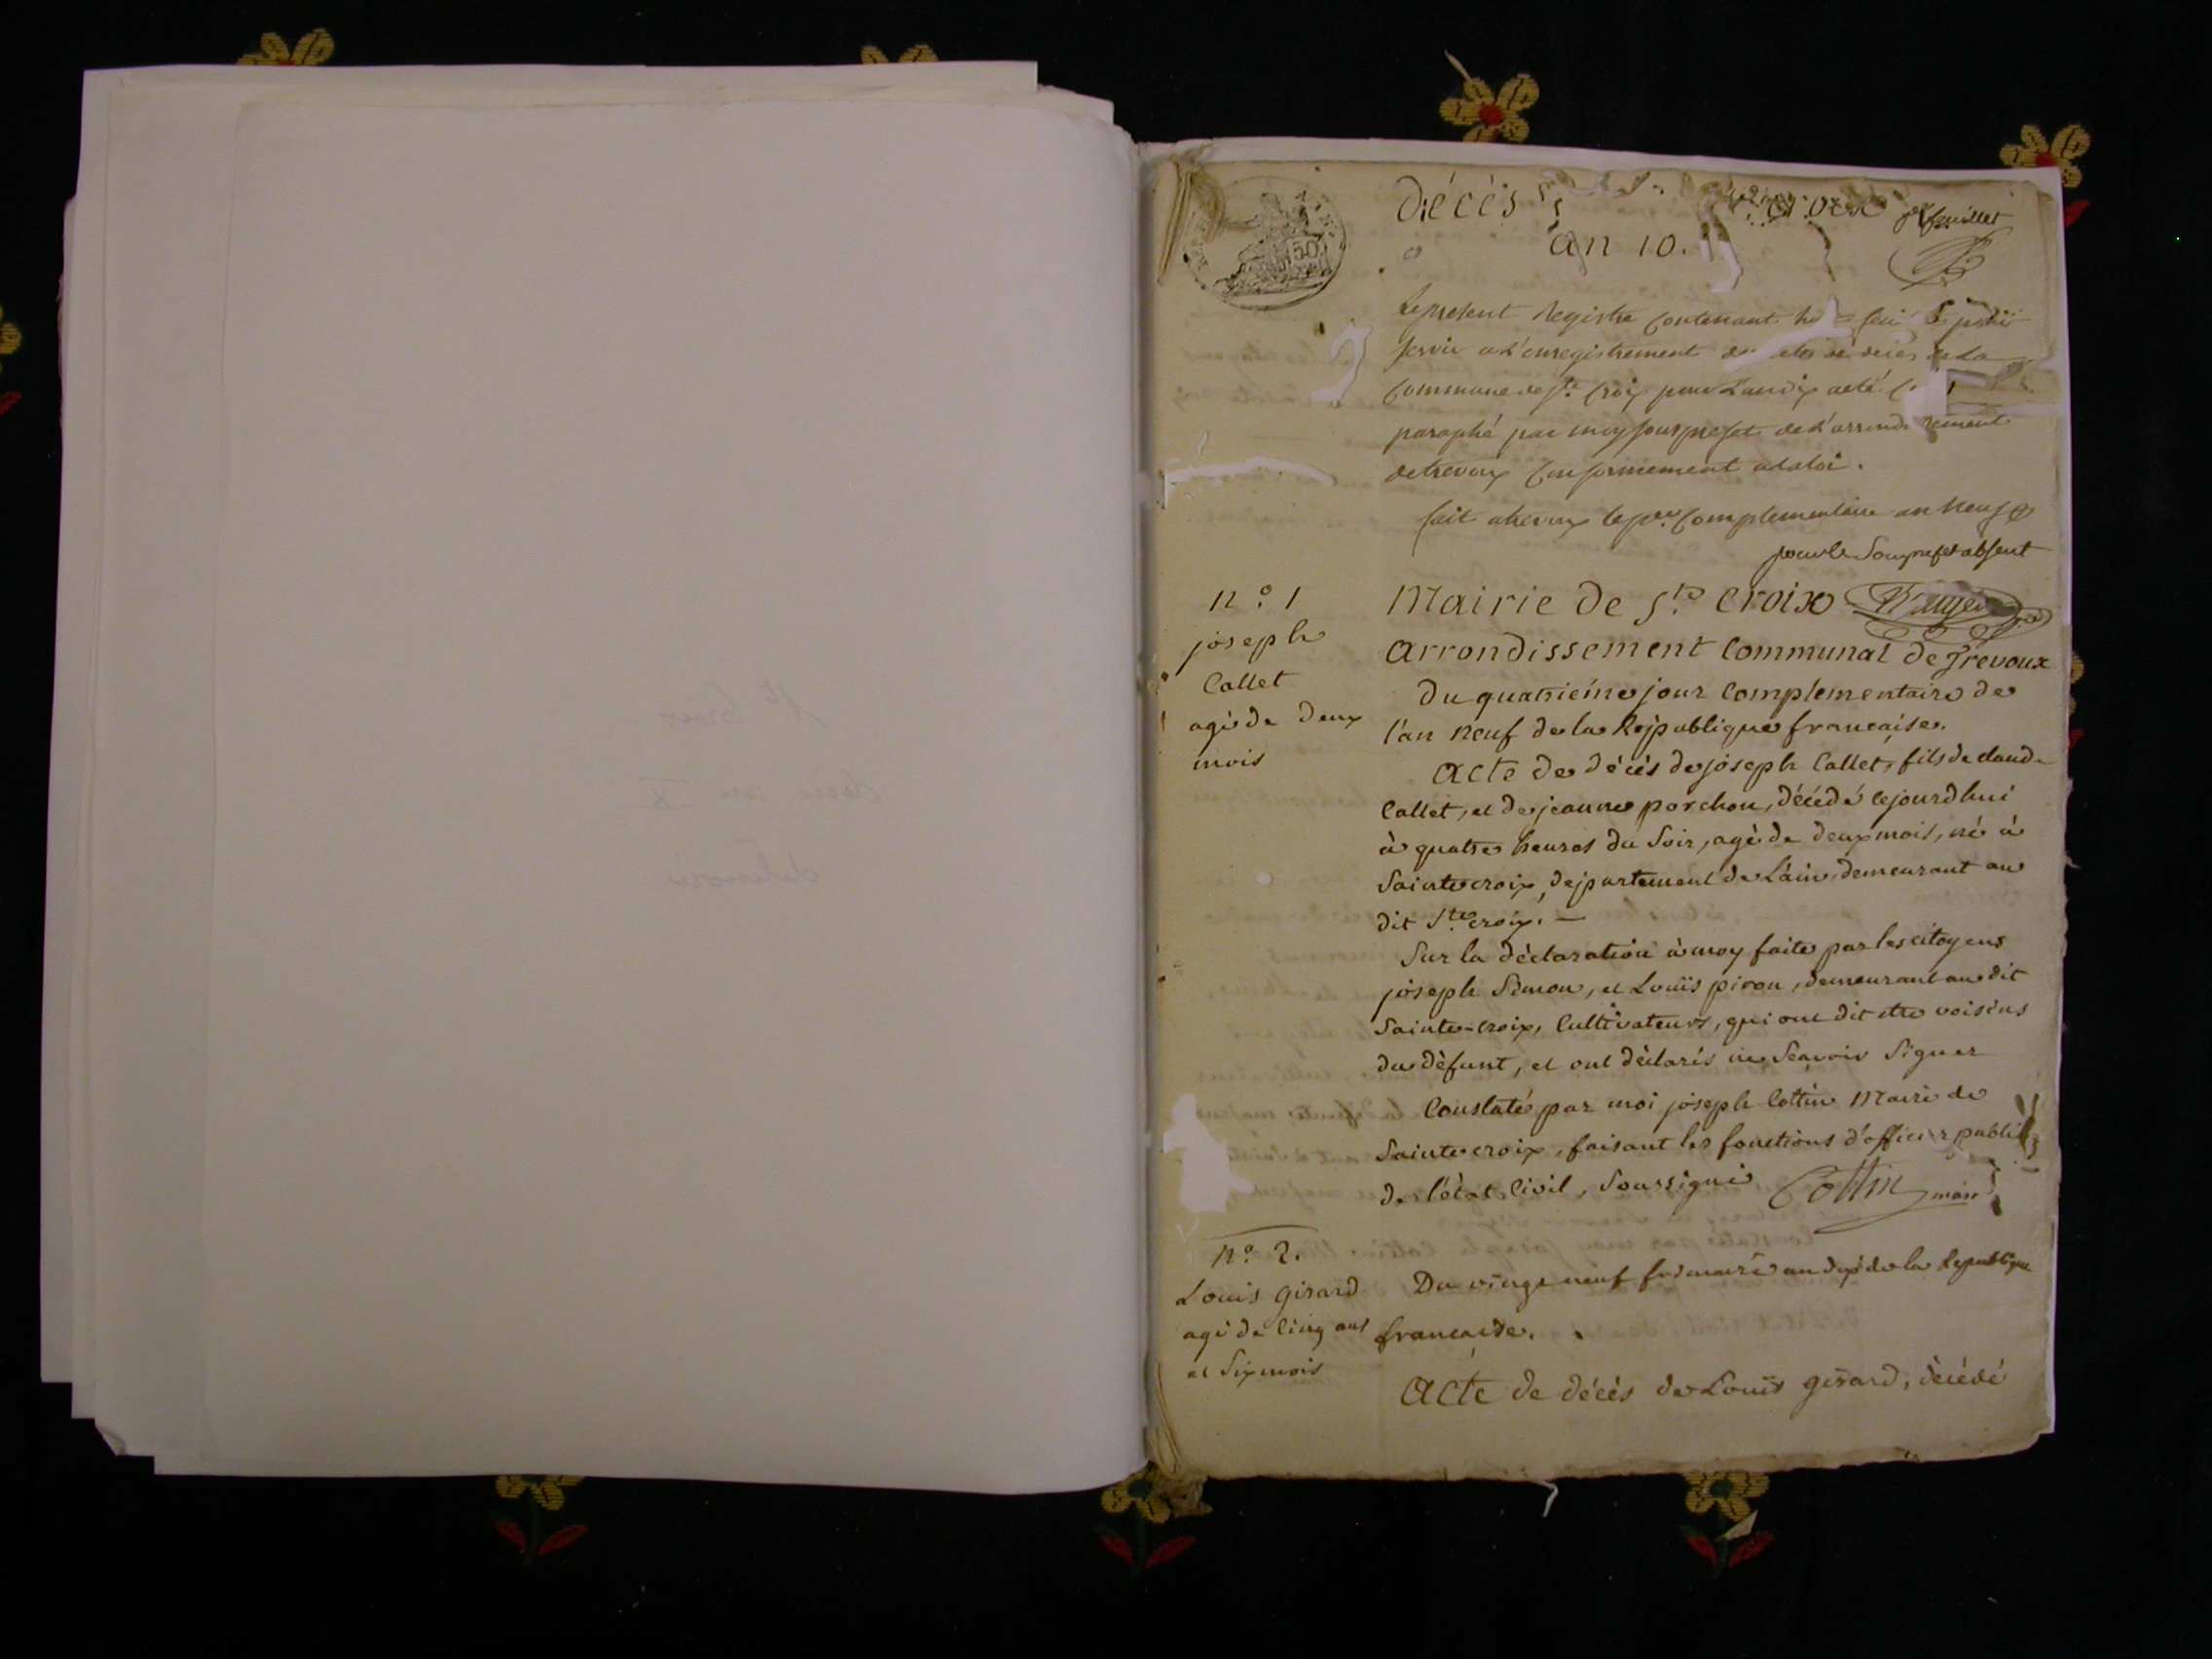 décès
an 10.
1er feuillet
50
Le present Registre contenant
servir a L'enregistrement de décés de La
Commune de Ste Croix pour L'an dix a eté
paraphé par moy sous prefet de L'arrondissement
de trevoux Conformement a la loi.
fait a trevoux le per Complementaire an neuf
pour le Sous prefet absent
n.o 1
joseph
Callet
agé de deux
mois
Mairie de Ste Croix
Arrondissement Communal de Trevoux
Du quatriéme jour Complementaire de
l'an neuf de la République francaise.
Acte de décés de joseph Callet, fils de claude
Callet, et de jeanne porchon, décédé cejourdhui
à quatre heures du Soir, agé de deux mois, né à
Sainte croix, département de L'ain, demeurant au
dit Ste croix. —
Sur la déclaration à moy faite par les citoyens
joseph Simon, et Louïs piron, demeurant au dit
Sainte-croix, Cultivateurs, qui ont dit etre voisins
du défunt, et ont déclarés ne Scavoir Signer
Constaté par moi joseph Cottin Maire de
Sainte croix, faisant les fonctions d'officier public
de l'état Civil, Soussigné Cottin maire
n.o 2.
Louis Girard
agé de Cinq ans
et Six mois
Du vingt neuf frimaire an dix de la Republique
francaise.
Acte de décés de Louïs girard, décédé